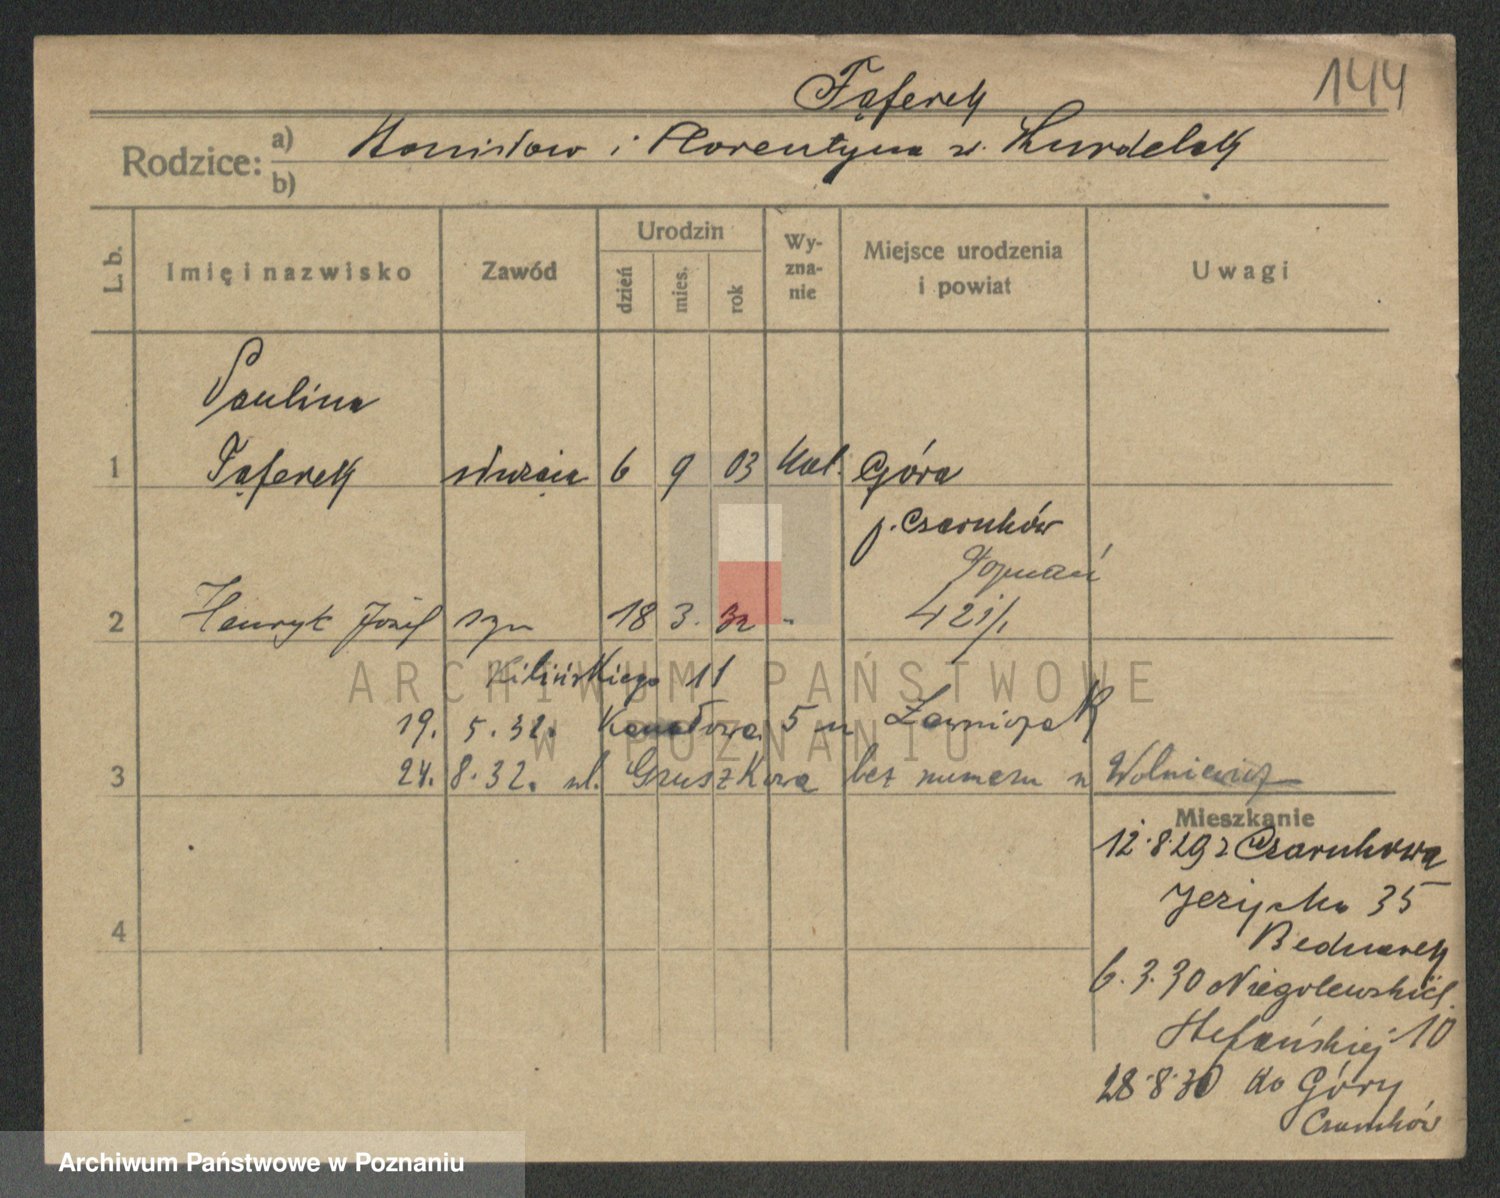 144
Fąferek
Rodzice: a) b) Stanisław i Florentyna z. Kurdelak
L. b.
Imię i nazwisko
Zawód
Urodzin
dzień
mies.
rok
Wy-
zna-
nie
Miejsce urodzenia
i powiat
Uwagi
Paulina
1 Fąferek służąca 6 9 03 kat. Góra
p. Czarnków
Poznań
2 Henryk Józef syn 18 3. 32 "
Kilińskiego 11
19. 5. 32. Kanałowa 5 u Ławniczak
3 24. 8. 32. ul. Gruszkowa bez numeru u Wolniewicz
Mieszkanie
12.8.29 z Czarnkowa
Jeżycka 35
4 Bednarek
6.3.30 Niegolewskich
Stefańskiej 10
28.8.30 do Góry
Czarnków
ARCHIWUM PAŃSTWOWE
W POZNANIU
Archiwum Państwowe w Poznaniu